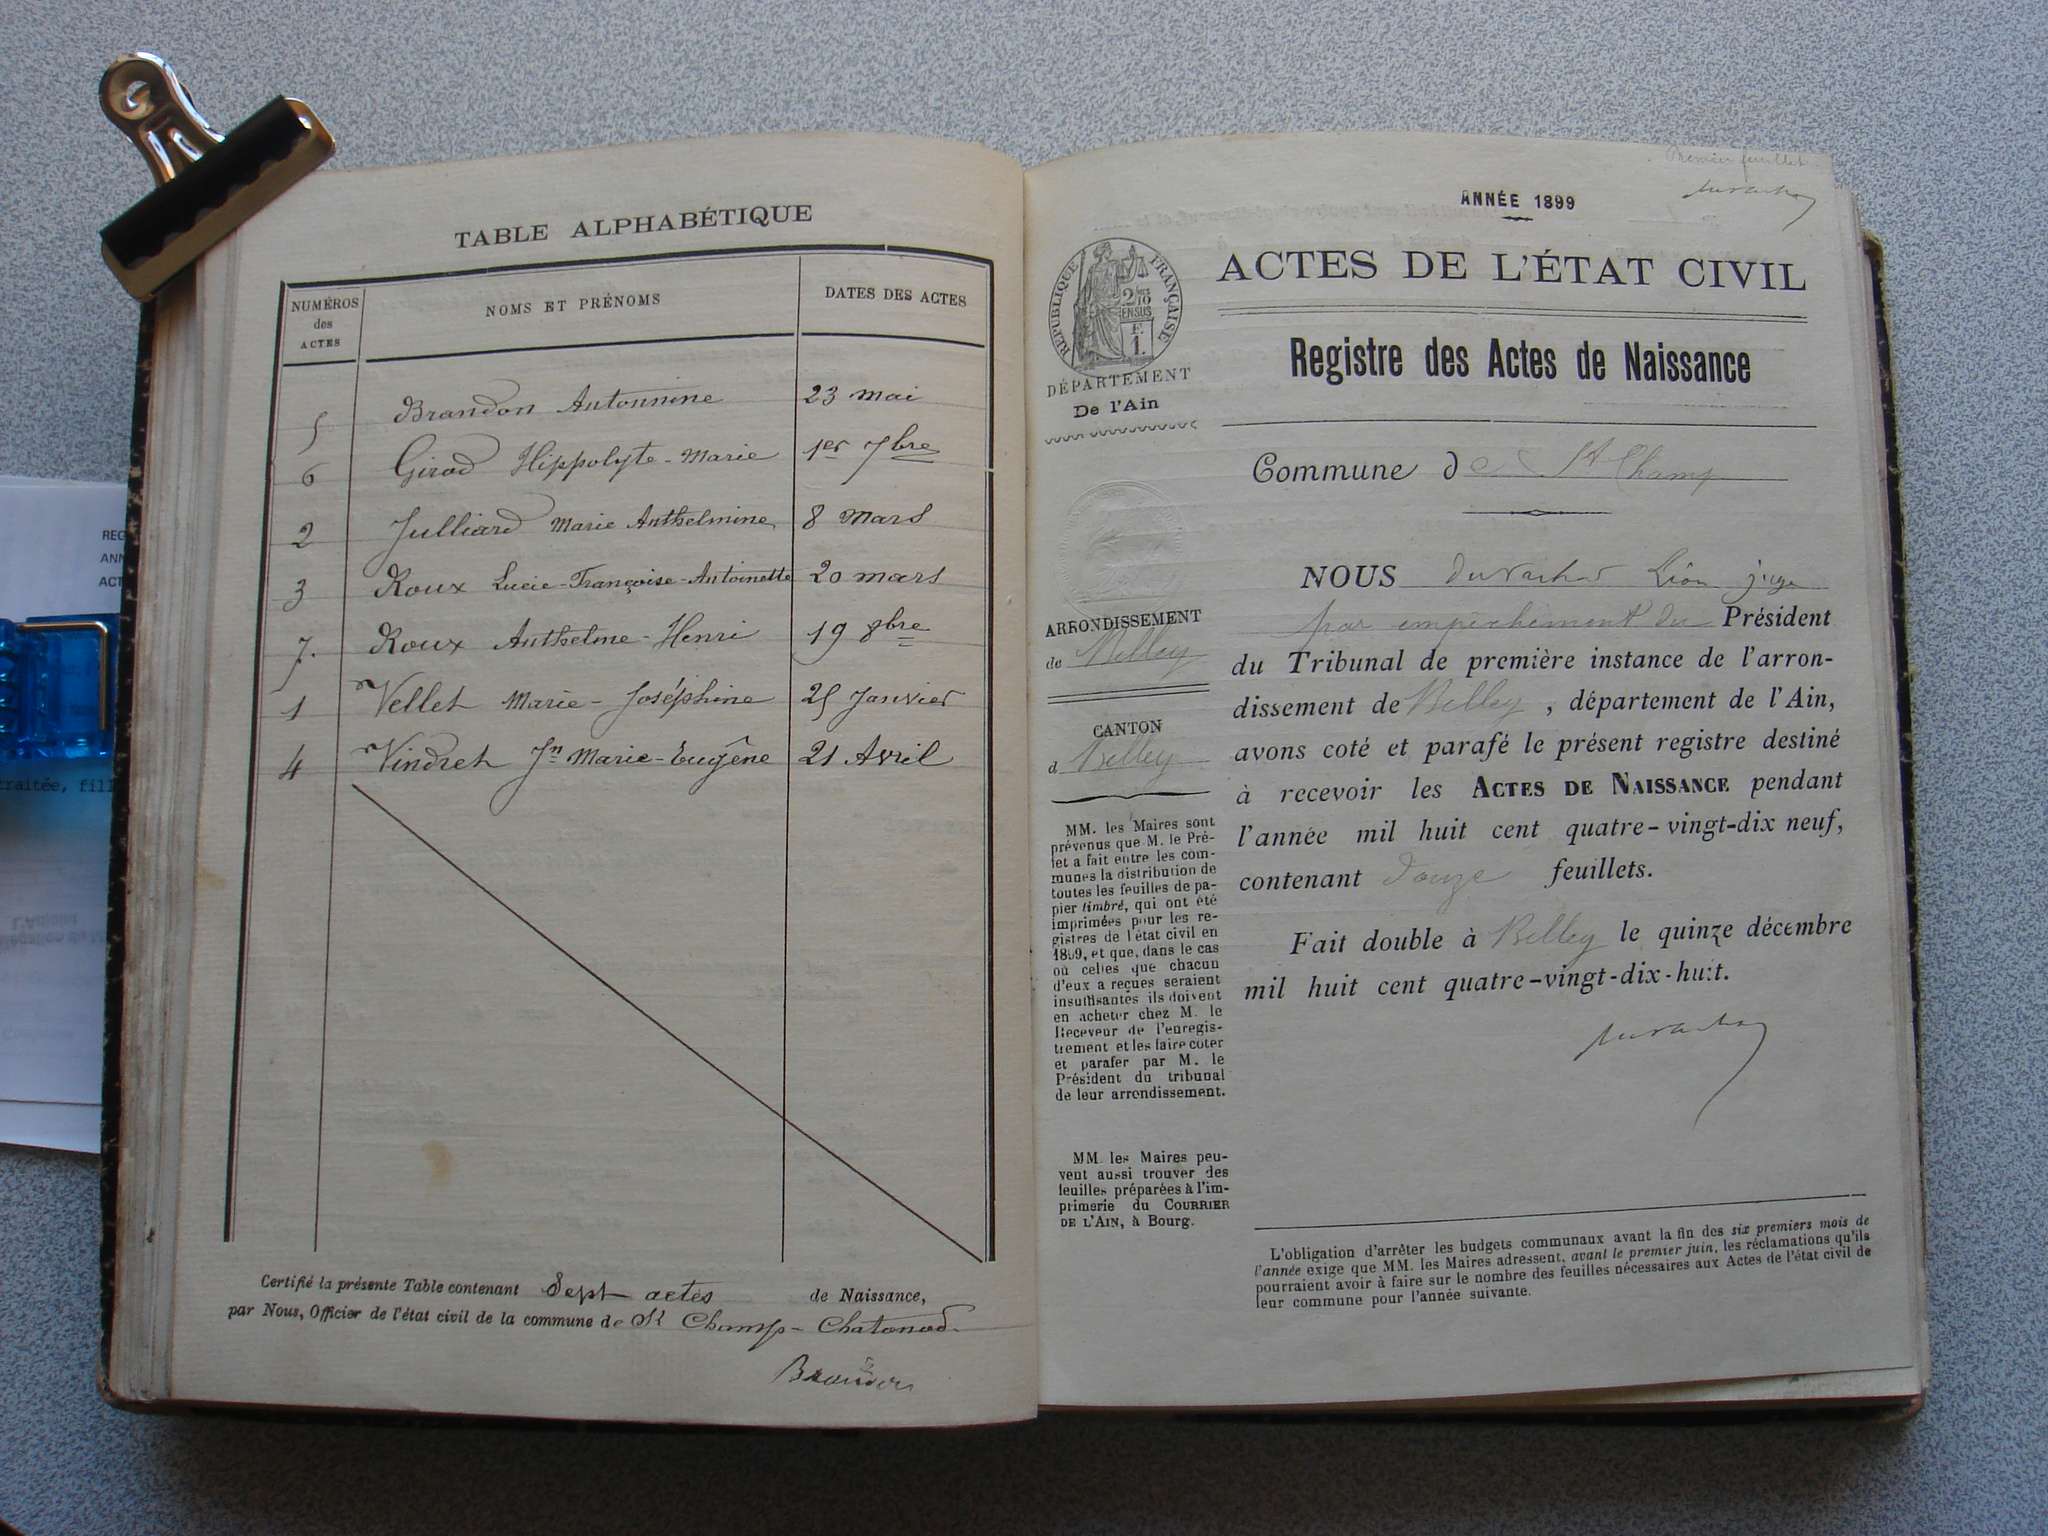 TABLE ALPHABÉTIQUE
NUMÉROS des ACTES
NOMS ET PRÉNOMS
DATES DES ACTES
5 Brandon Antonnine 23 mai
6 Girod Hippolyte-Marie 1er 7bre
2 Julliard Marie Anthelmine 8 mars
3 Roux Lucie-Françoise-Antoinette 20 mars
7. Roux Anthelme-Henri 19 8bre
1 Vellet Marie-Joséphine 25 Janvier
4 Vindret Jn Marie-Eugène 21 Avril
Certifié la présente Table contenant Sept actes de Naissance,
par Nous, Officier de l'état civil de la commune de St Champ-Chatonod
Brandon
Premier feuillet
ANNÉE 1899
ACTES DE L'ÉTAT CIVIL
Registre des Actes de Naissance
RÉPUBLIQUE FRANÇAISE
2/10
EN SUS
F.
1.
DÉPARTEMENT
De l'Ain
Commune de St Champ
ARRONDISSEMENT
de Belley
CANTON
d Belley
MM. les Maires sont
prévenus que M. le Pré-
fet a fait entre les com-
munes la distribution de
toutes les feuilles de pa-
pier timbré, qui ont été
imprimées pour les re-
gistres de l'état civil en
1899, et que, dans le cas
où celles que chacun
d'eux a reçues seraient
insuffisantes ils doivent
en acheter chez M. le
Receveur de l'enregis-
trement et les faire coter
et parafer par M. le
Président du tribunal
de leur arrondissement.
MM. les Maires peu-
vent aussi trouver des
feuilles préparées à l'im-
primerie du COURRIER
DE L'AIN, à Bourg.
NOUS Léon juge
par empêchement du Président
du Tribunal de première instance de l'arron-
dissement de Belley, département de l'Ain,
avons coté et parafé le présent registre destiné
à recevoir les ACTES DE NAISSANCE pendant
l'année mil huit cent quatre-vingt-dix neuf,
contenant douze feuillets.
Fait double à Belley le quinze décembre
mil huit cent quatre-vingt-dix-huit.
L'obligation d'arrêter les budgets communaux avant la fin des six premiers mois de
l'année exige que MM. les Maires adressent, avant le premier juin, les réclamations qu'ils
pourraient avoir à faire sur le nombre des feuilles nécessaires aux Actes de l'état civil de
leur commune pour l'année suivante.
REG
ANN
ACT
traitée, fill